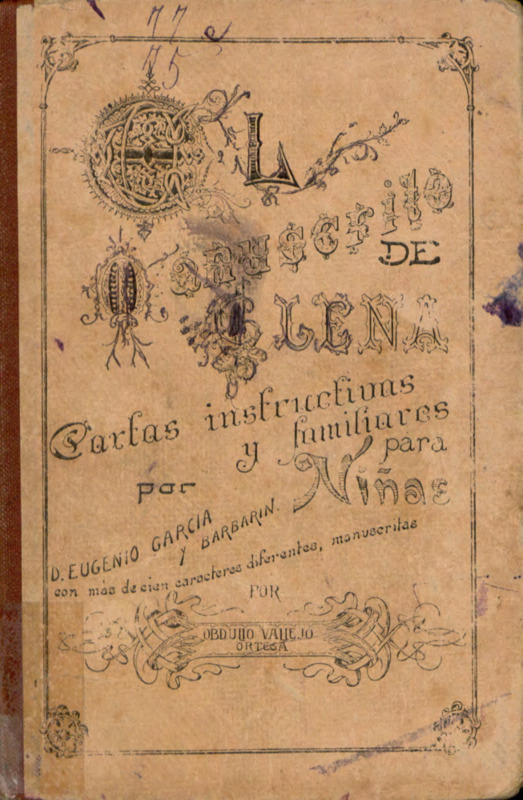 77
75
EL
Manuscrito
DE
ELENA
Cartas instructivas
y familiares
para
Niñas
por
D. EUGENIO GARCIA
Y BARBARIN.
con más de cien caracteres diferentes, manuscritas
POR
OBDULIO VALLEJO
ORTEGA